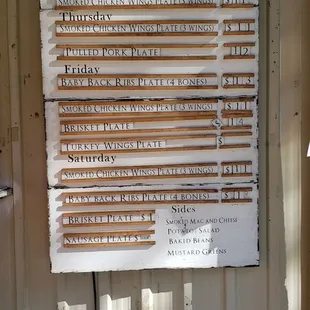 Smoked Chicken Wings Plate (3 wings) $11
Thursday
Smoked Chicken Wings Plate (3 wings) $11
Pulled Pork Plate $12
Friday
Baby Back Ribs Plate (4 bones) $13
Smoked Chicken Wings Plate (3 wings) $11
Brisket Plate $14
Turkey Wings Plate $
Saturday
Smoked Chicken Wings Plate (3 wings) $11
Baby Back Ribs Plate (4 bones) $
Brisket Plate $
Sausage Plate $
Sides
Smoked Mac and Cheese
Potato Salad
Baked Beans
Mustard Greens